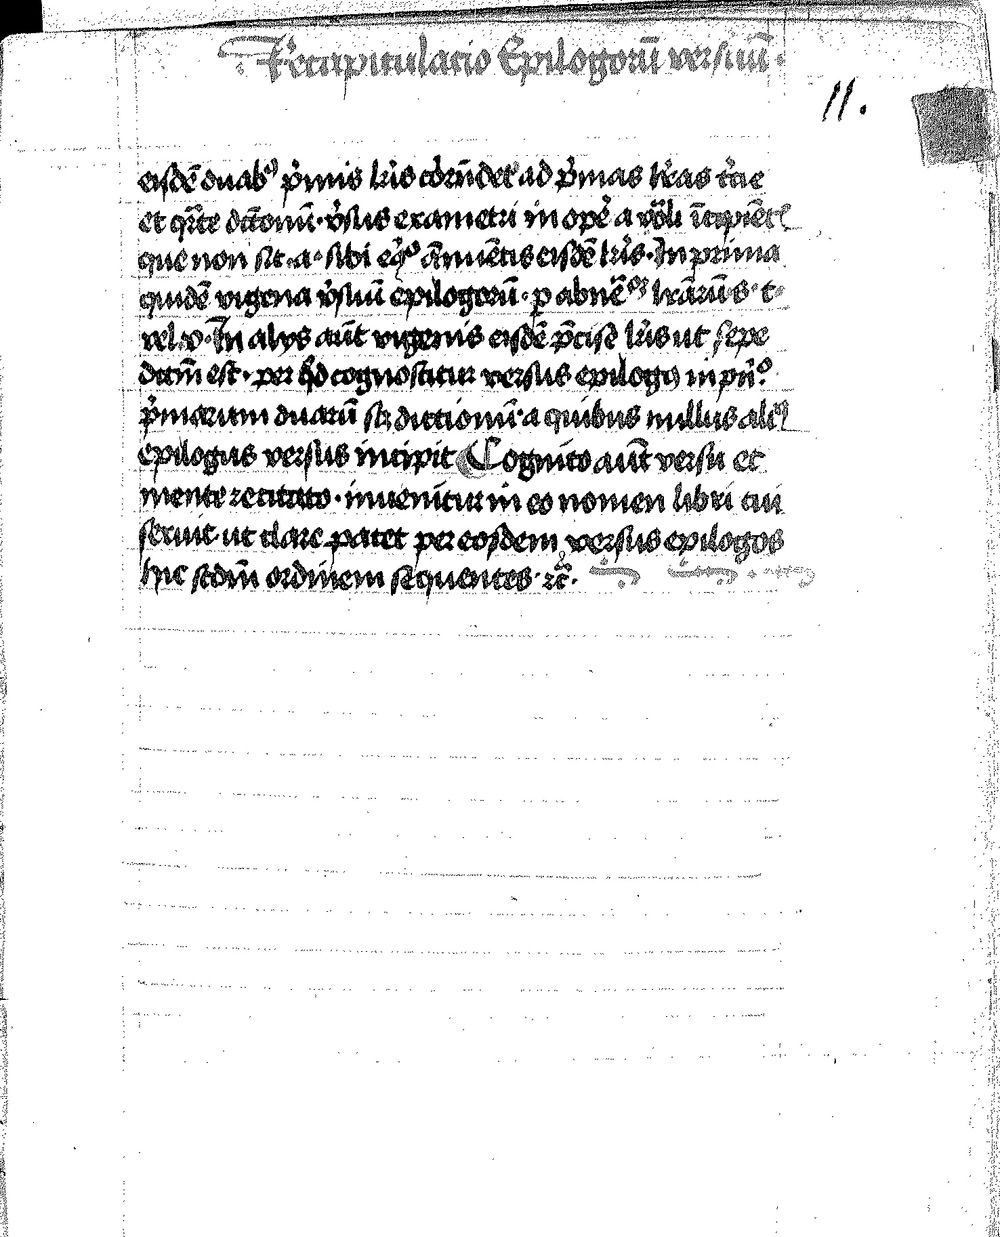 Recapitulacio Epilogorū versuū.
11.
eisdē duab⁹ p̄mis lr̄is cōrūdet ad p̄mas lr̄as
et dictionū · v̄sus exametri in
que non sit · a · sibi eisdē lr̄is · In prima
quidē vigena v̄suū epilogorū · t ·
vel · v · In alijs aūt vigenis eisdē p̄cise lr̄is ut sepe
dictm̄ est · per qd̄ cognoscitur versus epilog⁹ in
p̄marum duarū sꝫ dictionū · a quibus nullus
epilogus versus incipit Cognito aūt versu et
mente recitato · invenitur in eo nomen libri cui
servit · ut clare patet per eosdem versus epilogos
hic scdm̄ ordinem sequentes · ⁊c̄ ·